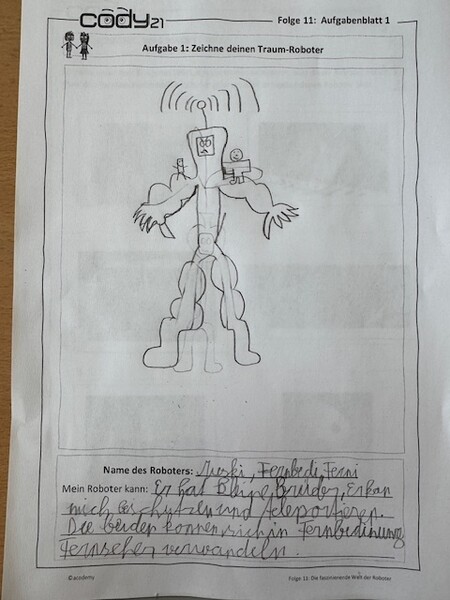 cody21
Folge 11: Aufgabenblatt 1
Aufgabe 1: Zeichne deinen Traum-Roboter
Name des Roboters: Muski, Fernbedi, Ferni
Mein Roboter kann: Er hat Bleine Brüder, Er kan
mich beschützen und teleportieren.
Die beiden können sich in Fernbedinung
Fernseher verwandeln.
© acodemy
Folge 11: Die faszinierende Welt der Roboter